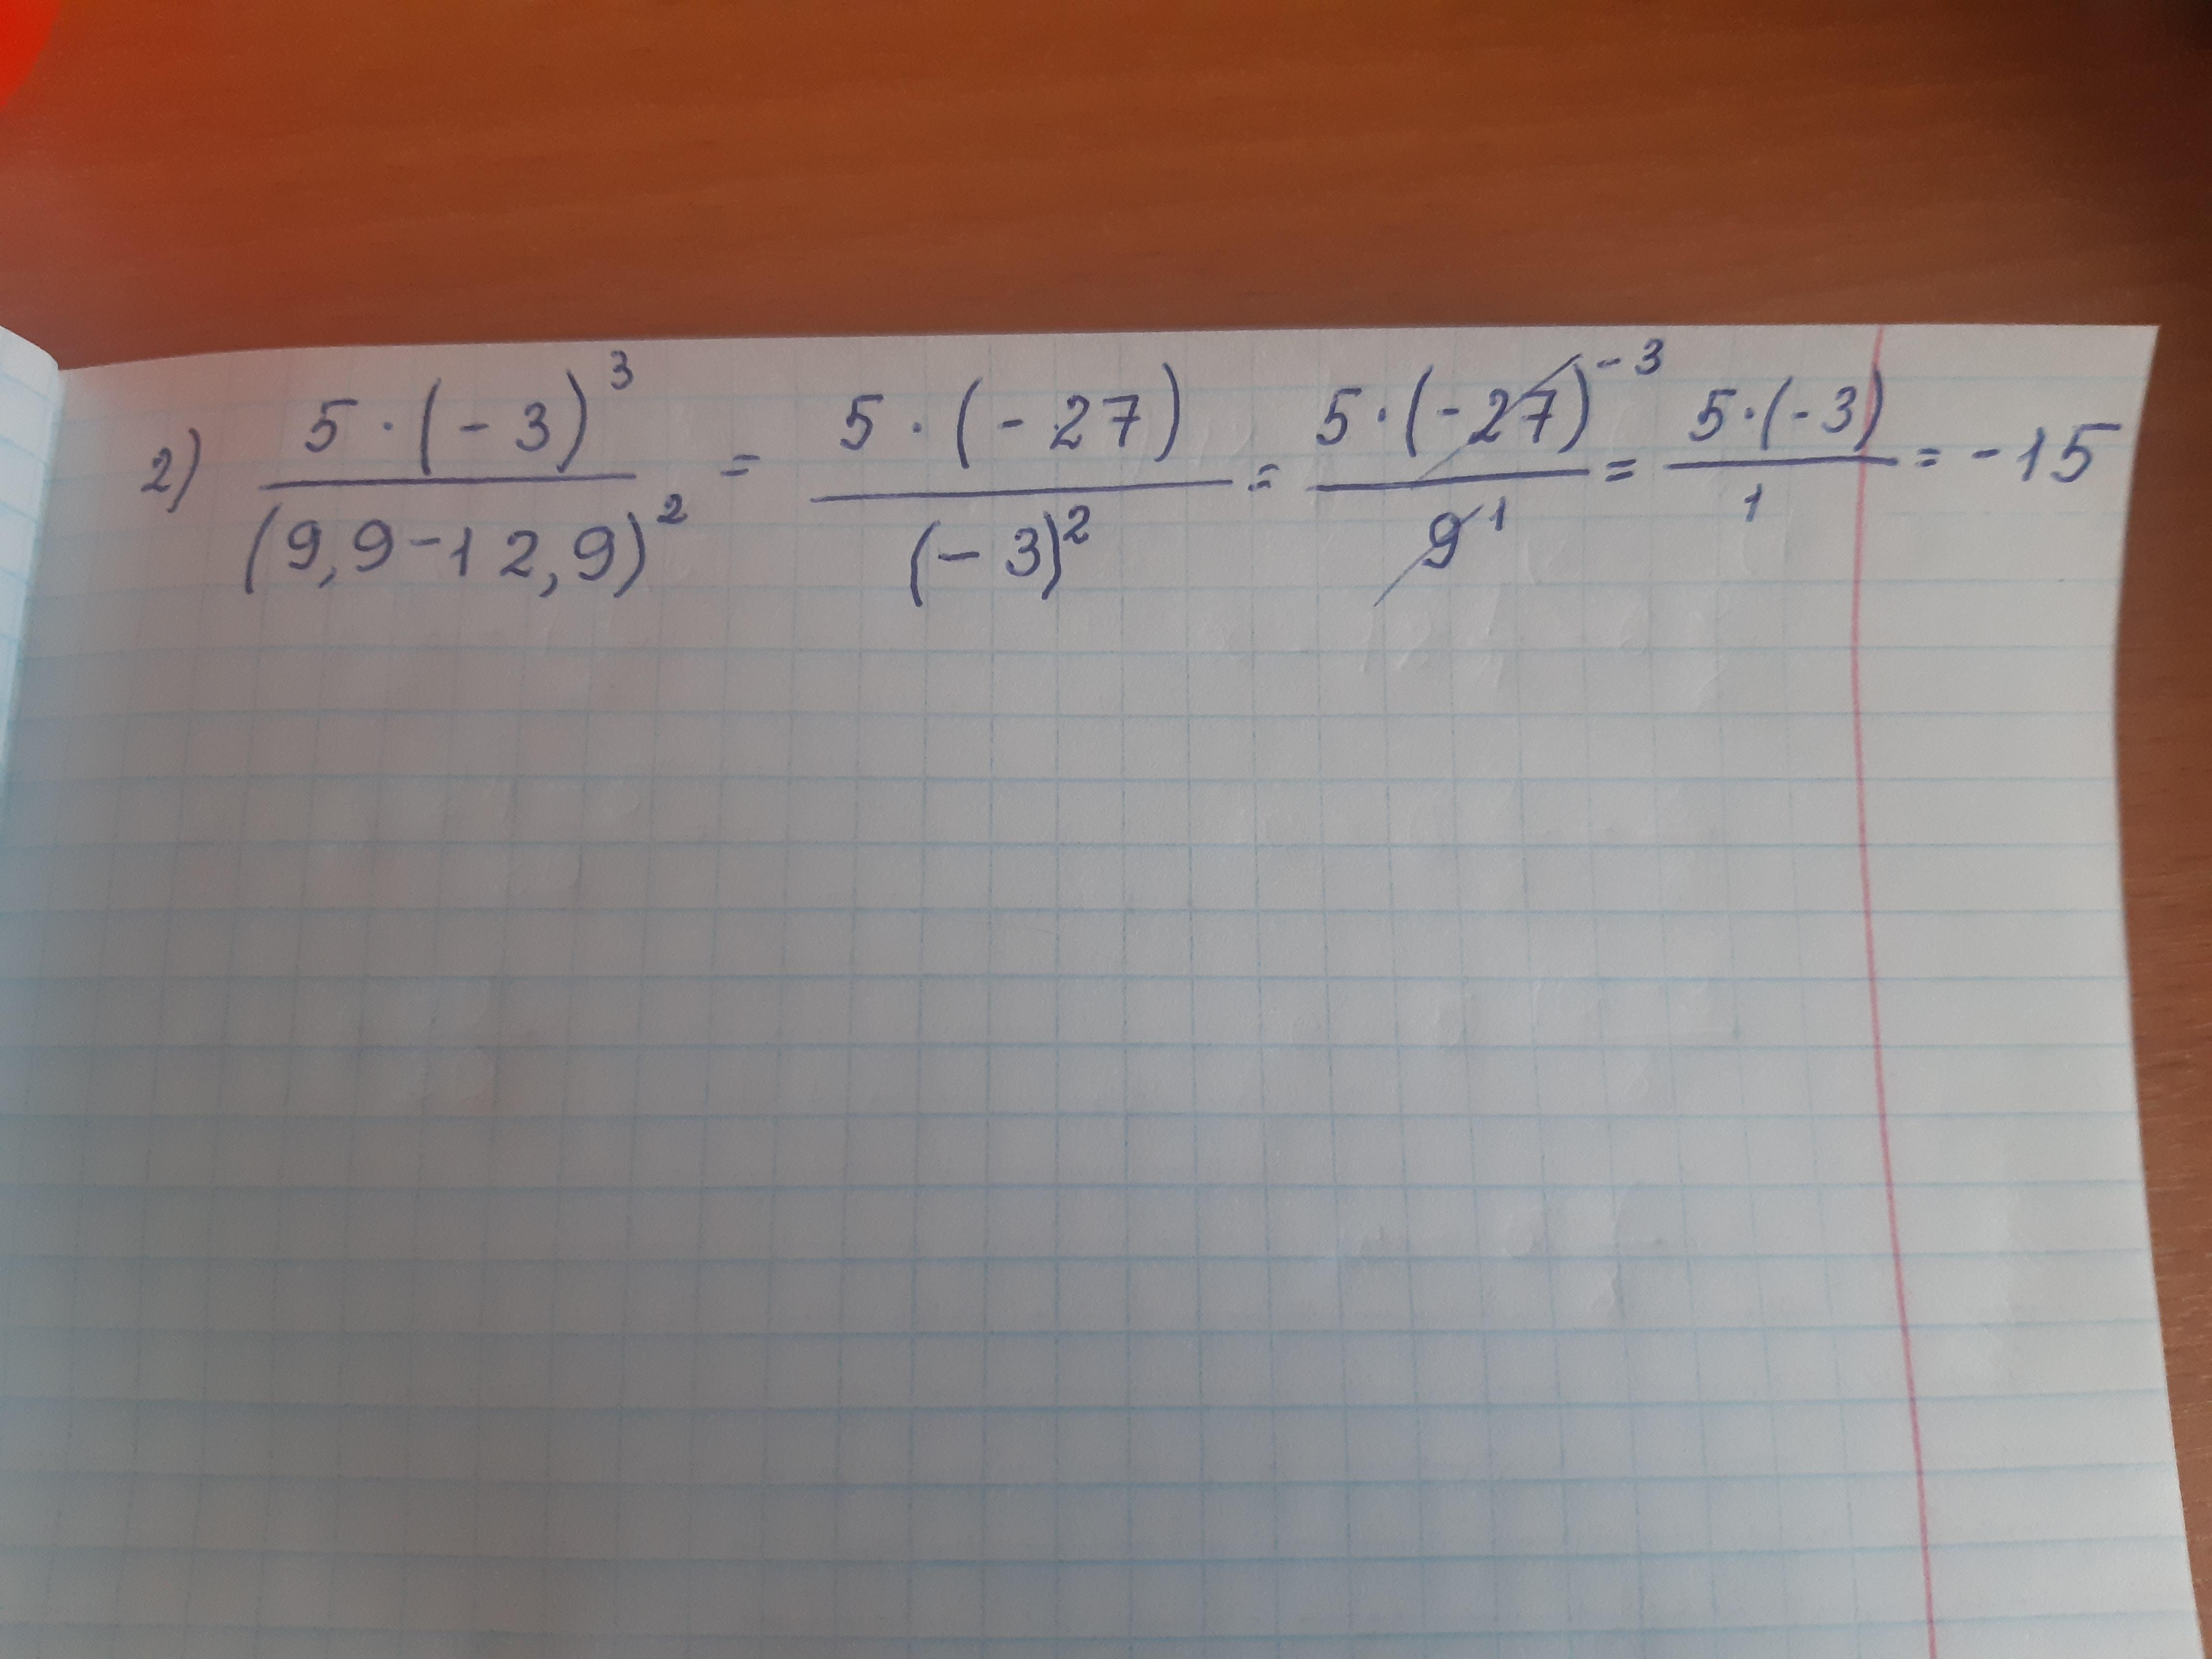 2) 5 · (-3)³ / (9,9-12,9)² = 5 · (-27) / (-3)² = 5 · (-27)⁻³ / 9¹ = 5 · (-3) / 1 = -15